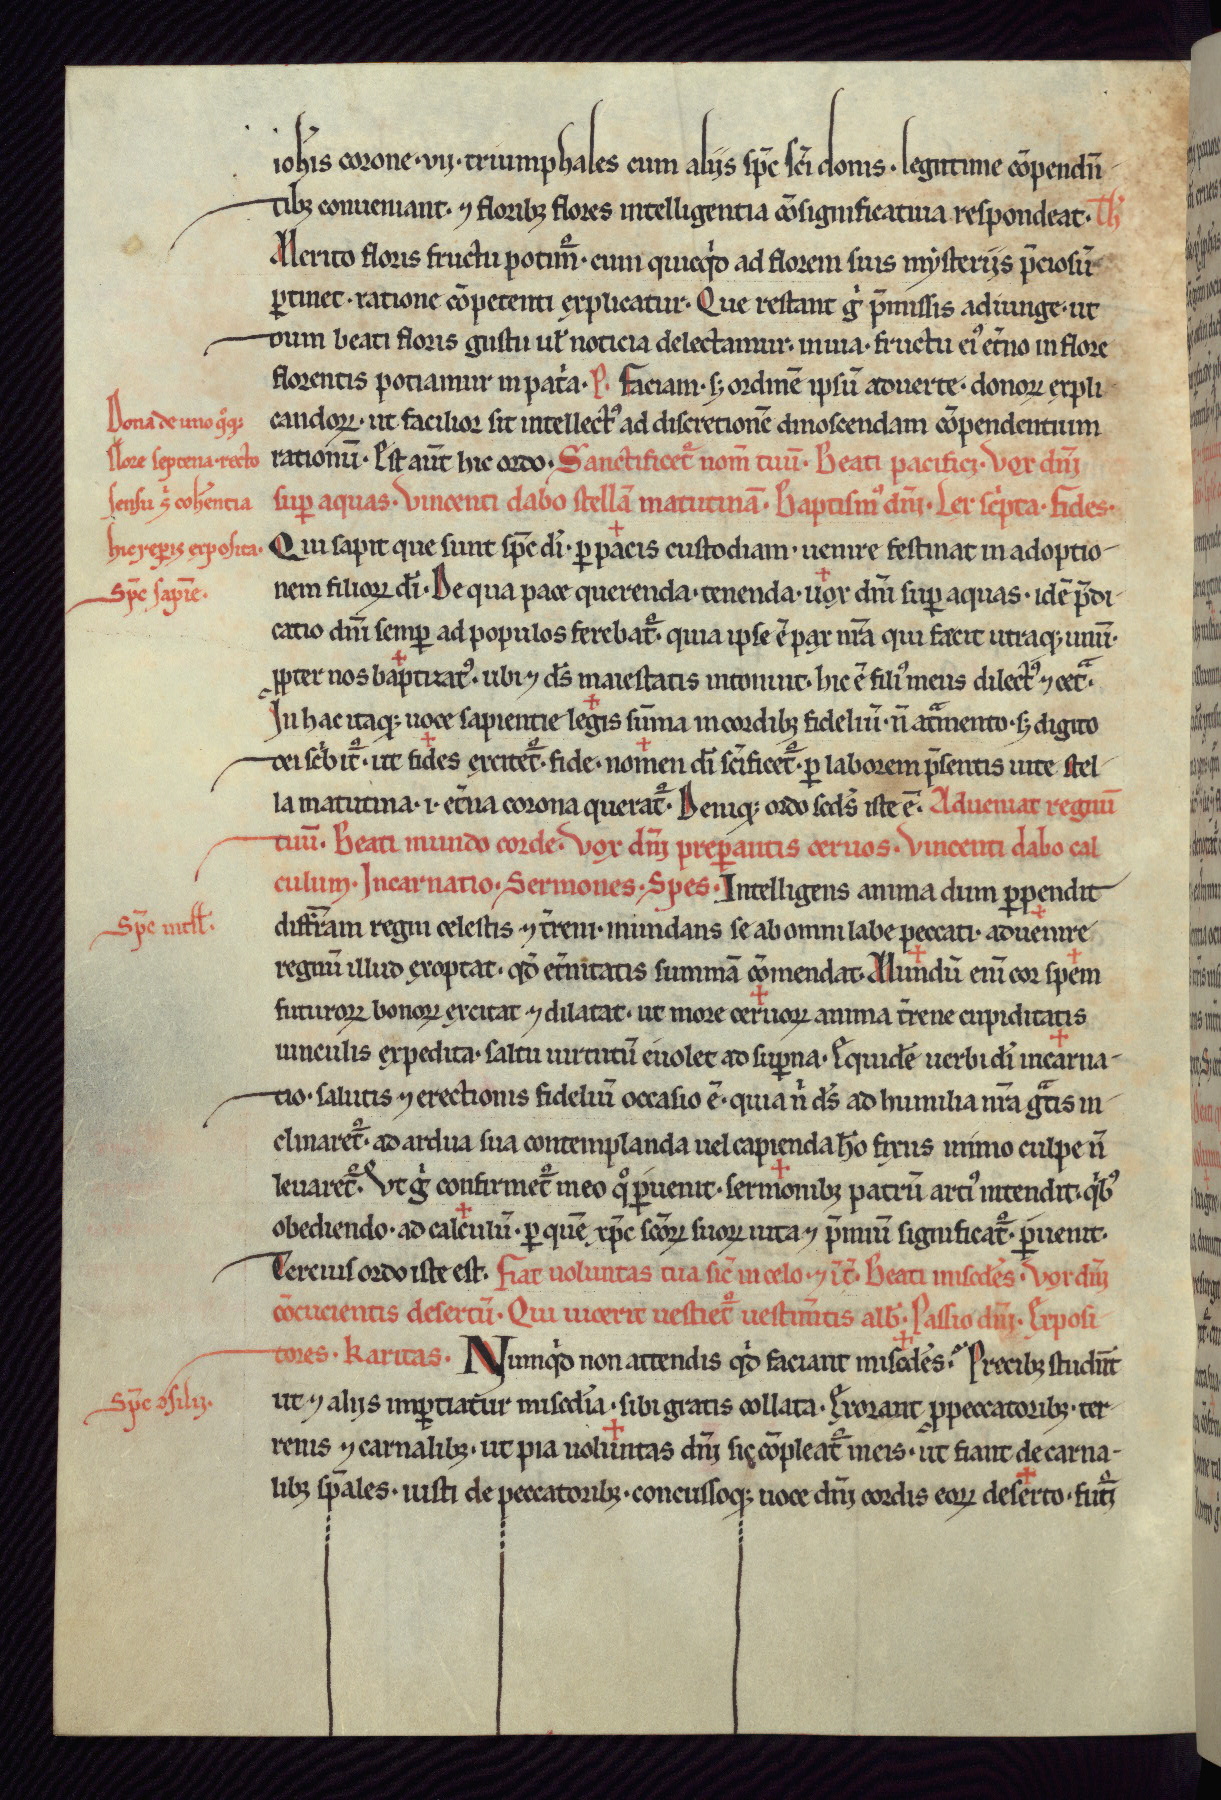 ioħis corone · vij · triumphales cum alijs sp̄c sc̄i donis · legitime cōpendn̄
tibꝫ conueniant · ⁊ floribꝫ flores intelligentia cōsignificatiua respondeat · Th
Merito floris fructu potim̄ · cum quicqͥd ad florem suis mysterijs p̄ciosū
ꝑtinet · ratione cōpetenti explicatur · Que restant gͥ p̄missis adiunge · ut
dum beati floris gustu uł noticia delectamur · in uia · fructu eiꝰ et̄no in flore
florentis potiamur in pat̄a · P · Faciam · sꝫ ordinē ipsū aduerte · donoꝝ expli
candoꝝ · ut facilior sit intellectꝰ ad discretionē dinoscendam cōpendentium
rationū · Est aūt hic ordo · Sanctificet᷑ nom̄ tuū · Beati pacifici · Vox dn̄i
suꝑ aquas · Vincenti dabo stellā matutinā · Baptismꝰ dn̄i · Lex sc̄pta · Fides ·
Qui sapit que sunt sp̄c di̅ · ꝑ pacis custodiam · uenire festinat in adoptio-
nem filioꝝ di̅ · De qua pace querenda · tenenda · uox dn̄i suꝑ aquas · idē p̄di
catio dn̄i semꝑ ad populos ferebat᷑ · quia ipse ē pax nr̄a qui fecit utraqꝫ unū ·
ꝓpter nos baptizatꝰ · ubi ⁊ ds̄ maiestatis intonuit · hic ē filiꝰ meus dilectꝰ ⁊ cetͣ ·
In hac itaqꝫ uoce sapientie legis sūma in cordibꝫ fideliū · n̄ atͣmento · sꝫ digito
dei sc̄bit᷑ · ut fides excitet᷑ · fide · nomen di̅ sc̄ificet᷑ · ꝑ laborem p̄sentis uite stel
la matutina · i · et̄na corona querat᷑ · Deniqꝫ ordo scd̄s iste ē · Adueniat regnū
tuū · Beati mundo corde · Vox dn̄i preꝑantis ceruos · Vincenti dabo cal
culum · Incarnatio · Sermones · Spes · Intelligens anima dum ꝑpendit
diffr̄am regni celestis ⁊ t̄reni · mundans se ab omni labe peccati · aduenire
regnū illud exoptat · qd̄ et̄nitatis summā cōmendat · Mundū enī cor spem
futuroꝝ bonoꝝ excitat ⁊ dilatat · ut more ceruoꝝ anima t̄rene cupiditatis
uinculis expedita · saltu uirtutū euolet ad suꝑna · Equidē uerbi di̅ incarna-
tio · salutis ⁊ erectionis fideliū occasio ē · quia n̄ ds̄ ad humilia nr̄a gͣtis in
clinaret᷑ · ad ardua sua contemplanda uel capienda ho̅ fixus in imo culpe n̄
leuaret᷑ · Vt gͥ confirmet᷑ in eo qͦ ꝑuenit · sermonibꝫ patrū artiꝰ intendit · qͥbꝰ
obediendo · ad calculū · ꝑ quē xp̄c sc̄oꝝ suoꝝ uita ⁊ p̄miū significat᷑ · ꝑuenit ·
Tercius ordo iste est · Fiat uoluntas tua sic̄ in celo · ⁊ i t̄ · Beati miscd̄es · Vox dn̄i
cōcucientis desertū · Qui uicerit uestiet᷑ uestim̄tis alb̄ · Passio dn̄i · Exposi
tores · Karitas · Numqͥd non attendis qͥd faciant miscd̄es · Precibꝫ studn̄t
ut ⁊ alijs imꝑtiatur miscd̄ia · sibi gratis collata · Exorant ꝓ peccatoribꝫ · ter
renis ⁊ carnalibꝫ · ut pia uoluntas dn̄i sic cōpleat᷑ in eis · ut fiant de carna-
libꝫ sp̄ales · iusti de peccatoribꝫ · concussoqꝫ uoce dn̄i cordis eoꝝ deserto · fut᷑i
Dona de uno qͦqꝫ
flore septena · recto
sensu ⁊ coħentia
exposita ·
Sp̄c sapīe ·
Sp̄c intll̄ ·
Sp̄c ↄsilij ·